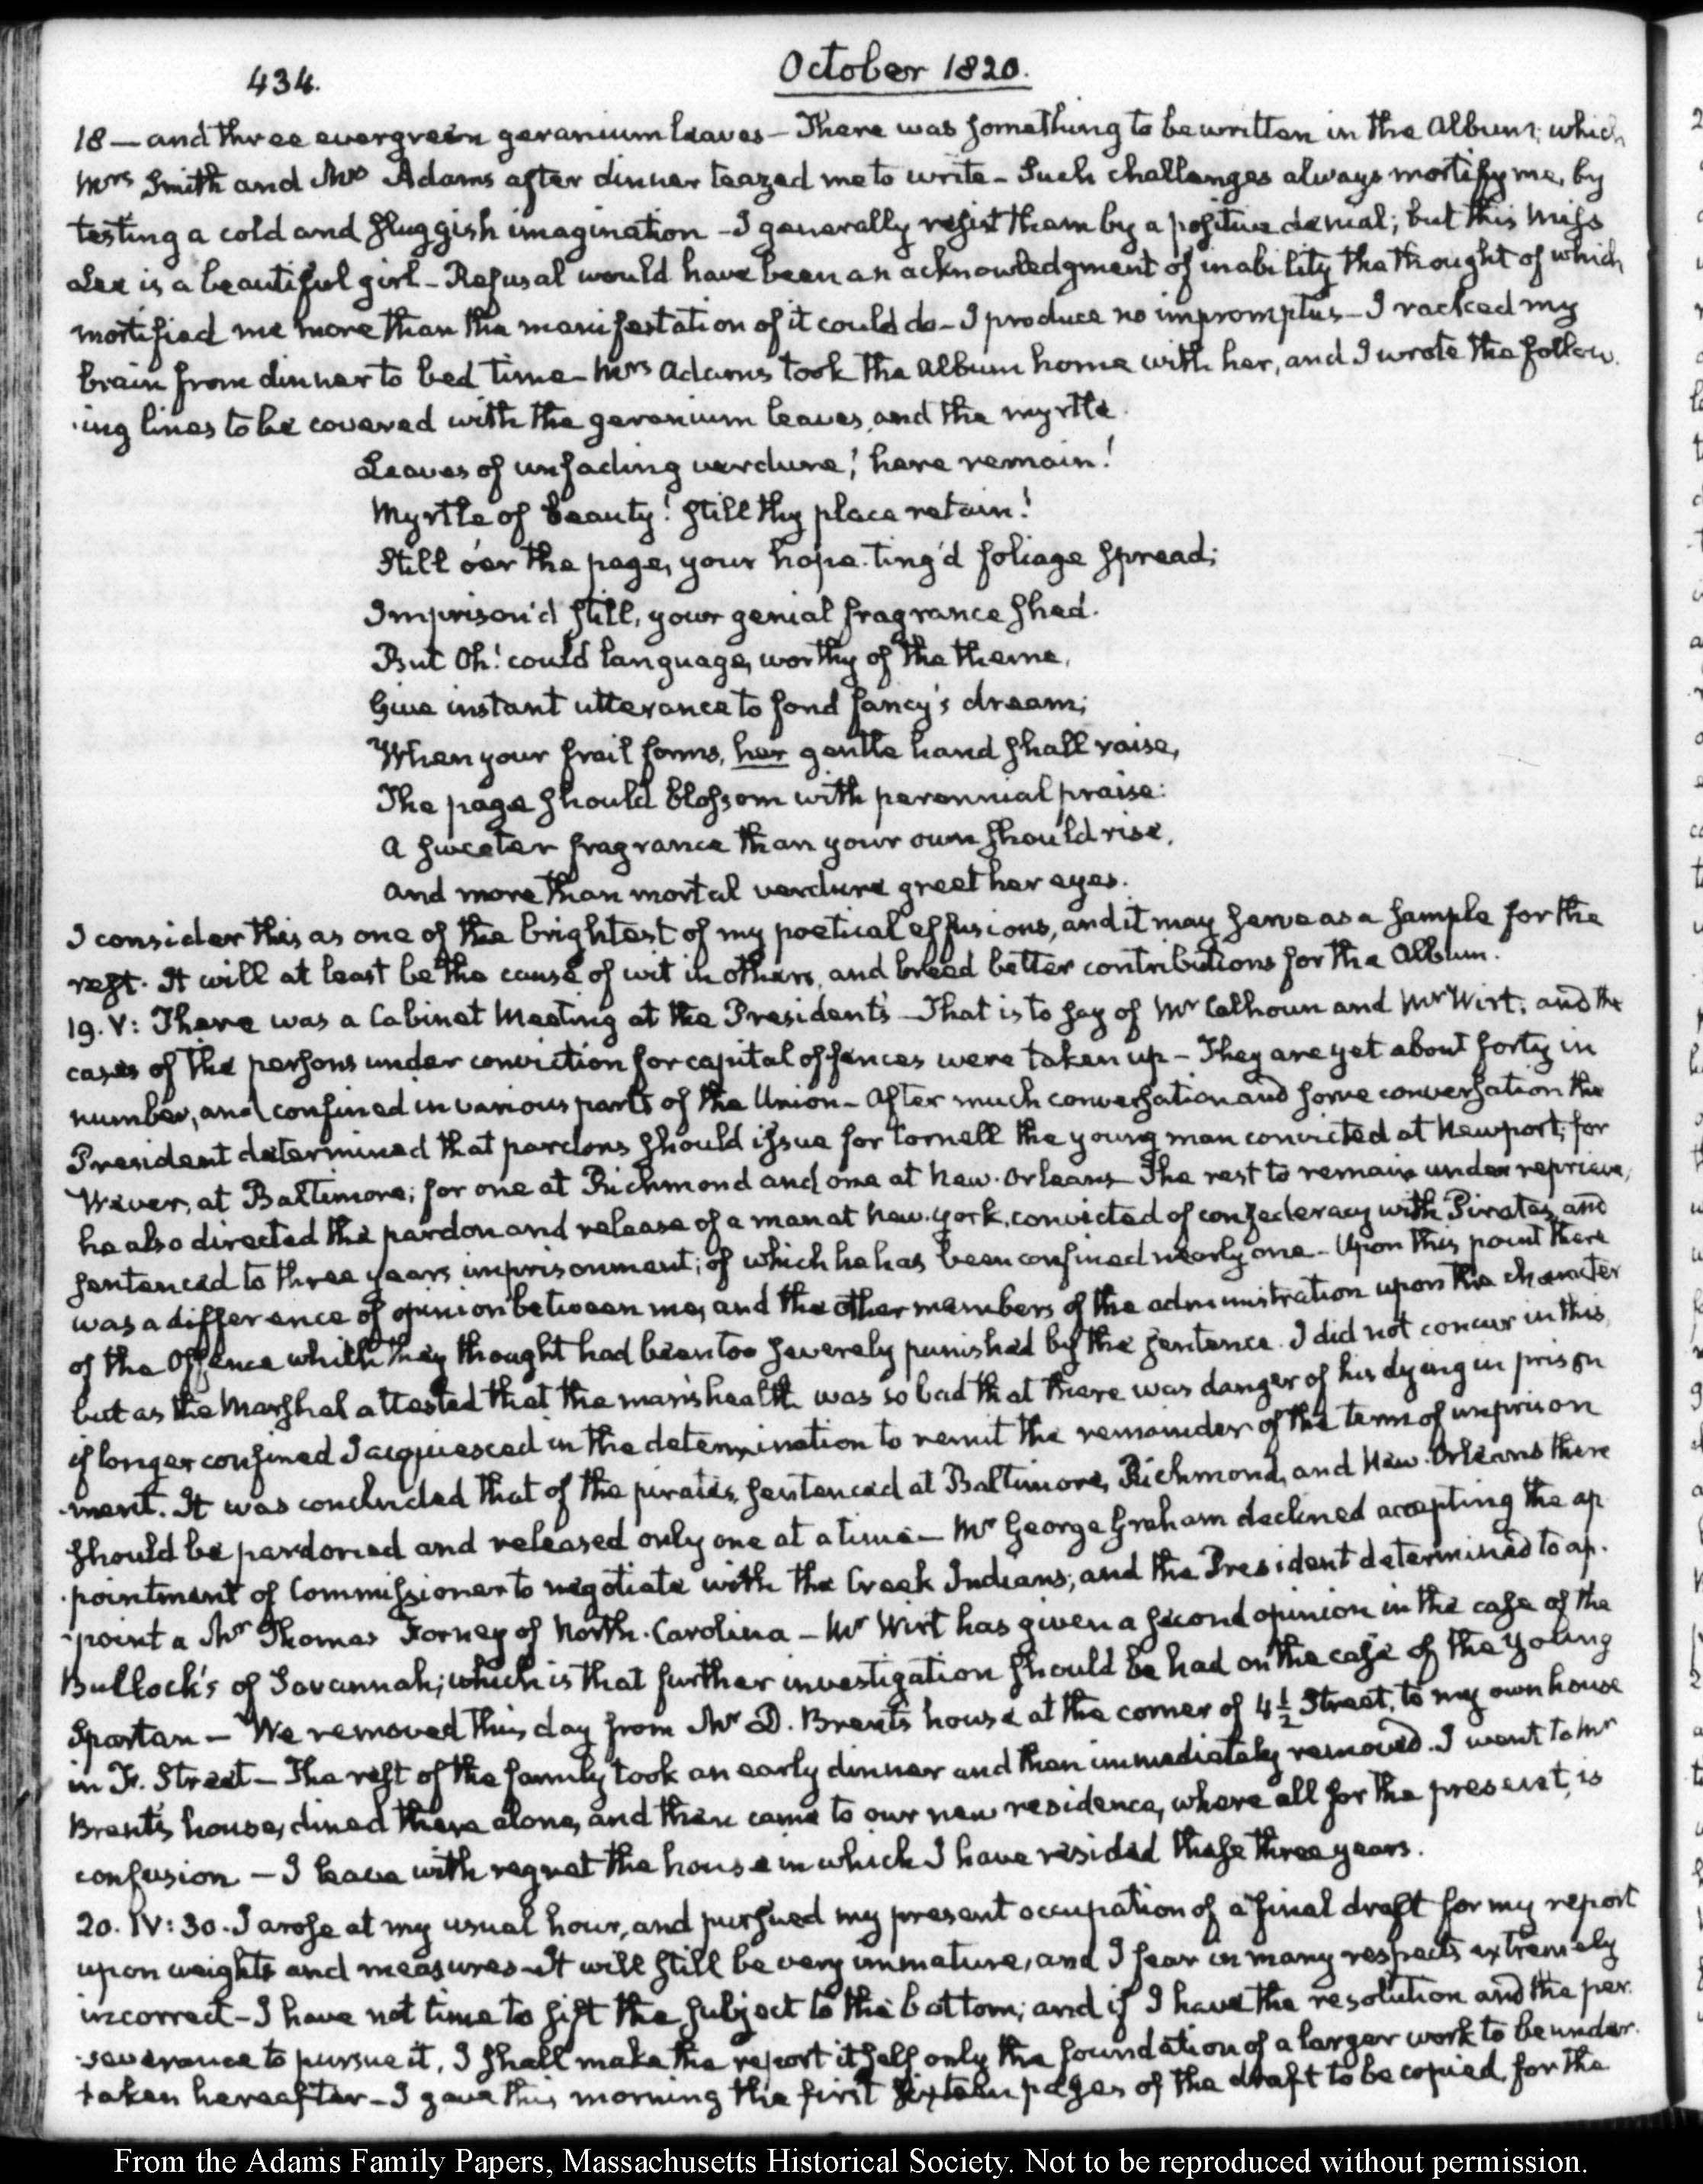 434.
October 1820.
18 — and three evergreen geranium leaves – There was something to be written in the Album; which
Mrs Smith and Mrs Adams after dinner teazed me to write – Such challenges always mortify me, by
testing a cold and sluggish imagination – I generally resist them by a positive denial; but this Miss
Lee is a beautiful girl – Refusal would have been an acknowledgment of inability the thought of which
mortified me more than the manifestation of it could do – I produce no impromptus – I racked my
brain from dinner to bed time – Mrs Adams took the Album home with her, and I wrote the follow.
·ing lines to be covered with the geranium leaves, and the myrtle.
Leaves of unfading verdure! here remain!
Myrtle of beauty! still thy place retain!
Still o'er the page, your hope-ting'd foliage spread;
Imprison'd still, your genial fragrance shed.
But Oh! could language, worthy of the theme,
Give instant utterance to fond fancy's dream;
When your frail forms, her gentle hand shall raise,
The page should blossom with perennial praise:
A sweeter fragrance than your own should rise,
And more than mortal verdure greet her eyes.
I consider this as one of the brightest of my poetical effusions, and it may serve as a sample for the
rest. It will at least be the cause of wit in others, and breed better contributions for the Album.
19. V: There was a Cabinet Meeting at the President's – That is to say of Mr Calhoun and Mr Wirt; and the
cases of the persons under conviction for capital offences were taken up – They are yet about forty in
number, and confined in various parts of the Union – After much conversation and some conversation the
President determined that pardons should issue for Cornell the young man convicted at Newport; for
Weaver, at Baltimore; for one at Richmond and one at New-Orleans – The rest to remain under reprieve,
he also directed the pardon and release of a man at New-York, convicted of confederacy with Pirates, and
sentenced to three years imprisonment; of which he has been confined nearly one – Upon this point there
was a difference of opinion between me, and the other members of the administration upon the character
of the Offence which they thought had been too severely punished by the sentence. I did not concur in this,
but as the Marshal attested that the man's health was so bad that there was danger of his dying in prison
if longer confined I acquiesced in the determination to remit the remainder of the term of imprison
·ment. It was concluded that of the pirates, sentenced at Baltimore, Richmond, and New-Orleans there
should be pardoned and released only one at a time – Mr George Graham declined accepting the ap
·pointment of Commissioner to negotiate with the Creek Indians; and the President determined to ap.
·point a Mr Thomas Forney of North-Carolina – Mr Wirt has given a second opinion in the case of the
Bullock's of Savannah; which is that further investigation should be had on the case of the young
Spartan – We removed this day from Mr D. Brent's house at the corner of 4½ Street, to my own house
in F. Street – The rest of the family took an early dinner and then immediately removed. I went to Mr
Brent's house, dined there alone, and then came to our new residence, where all for the present, is
confusion – I leave with regret the house in which I have resided these three years.
20. IV: 30. I arose at my usual hour, and pursued my present occupation of a final draft for my report
upon weights and measures – It will still be very immature, and I fear in many respects extremely
incorrect – I have not time to sift the subject to the bottom; and if I have the resolution and the per.
·severance to pursue it, I shall make the report itself only the foundation of a larger work to be under.
taken hereafter – I gave this morning the first sixteen pages of the draft to be copied for the
From the Adams Family Papers, Massachusetts Historical Society. Not to be reproduced without permission.